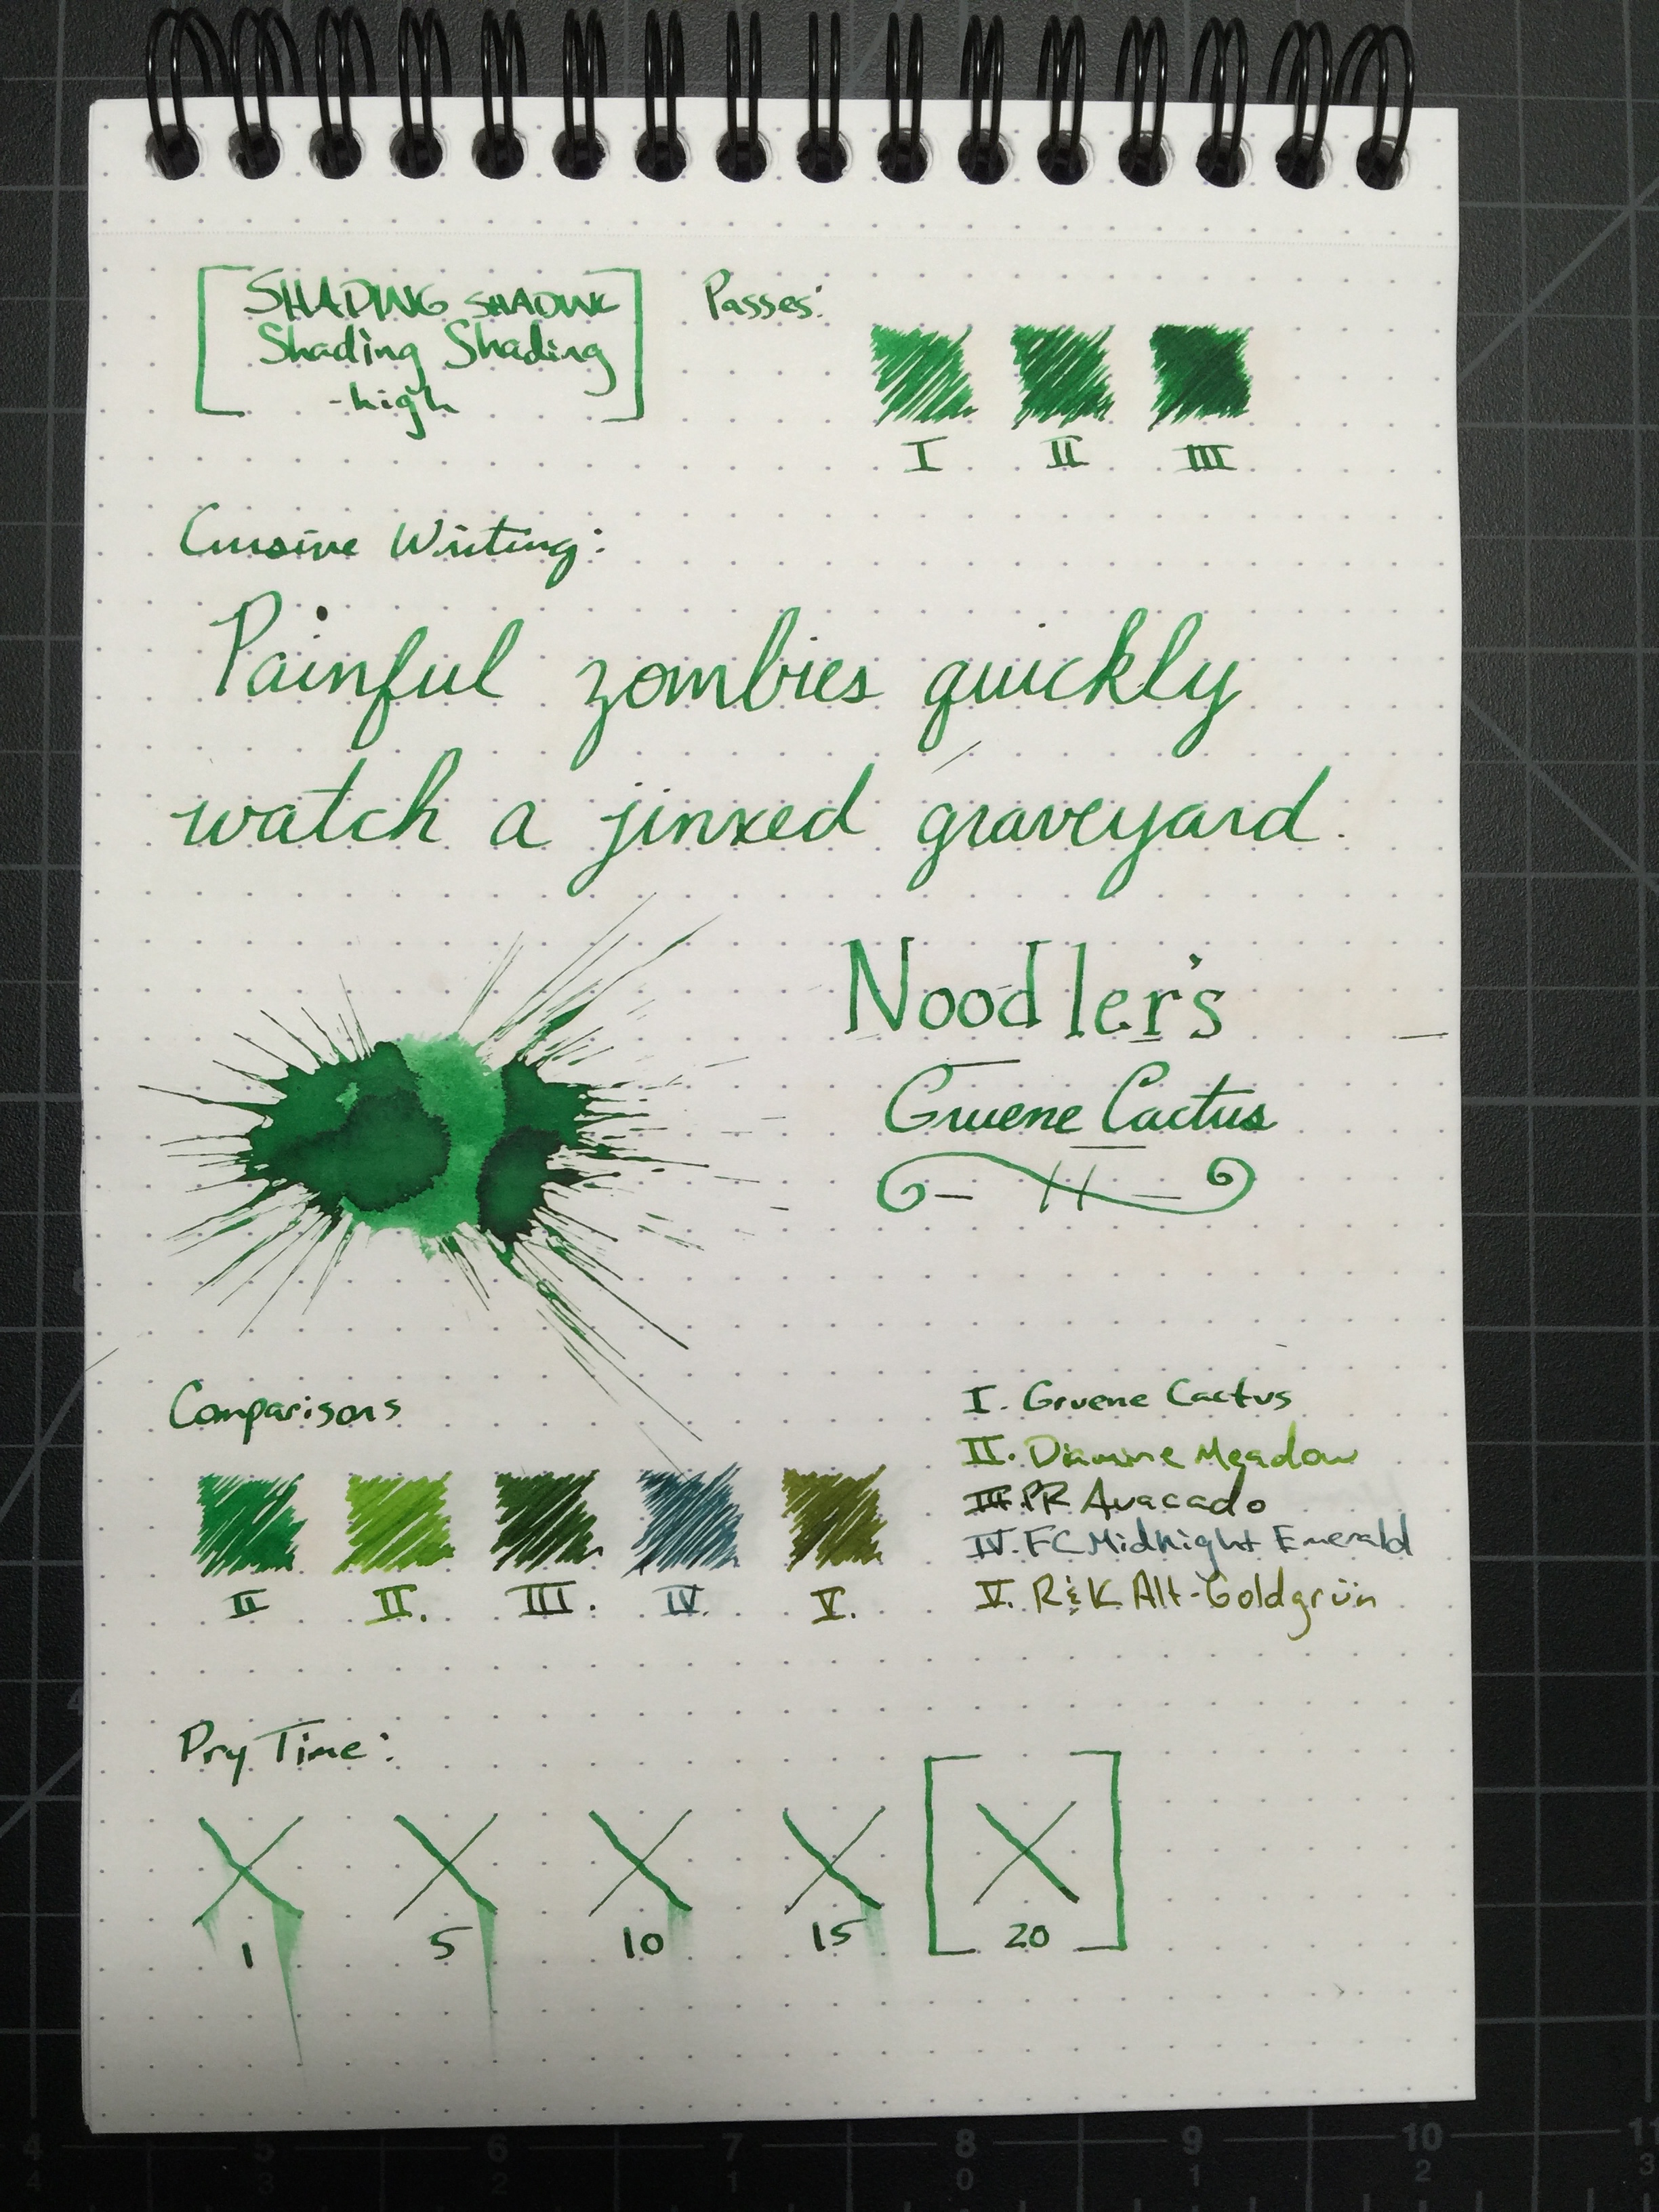 SHADING SHADING
Shading Shading
-high
Passes:
I II III
Cursive Writing:
Painful zombies quickly
watch a jinxed graveyard.
Noodler's
Gruene Cactus
Comparisons
II II. III. IV. V.
I. Gruene Cactus
II. Diamine Meadow
III. PR Avacado
IV. FC Midnight Emerald
V. R&K Alt-Goldgrün
Dry Time:
1 5 10 15 20
4 5 6 7 8 9 10 11
4 3 2 1 0 1 2 3